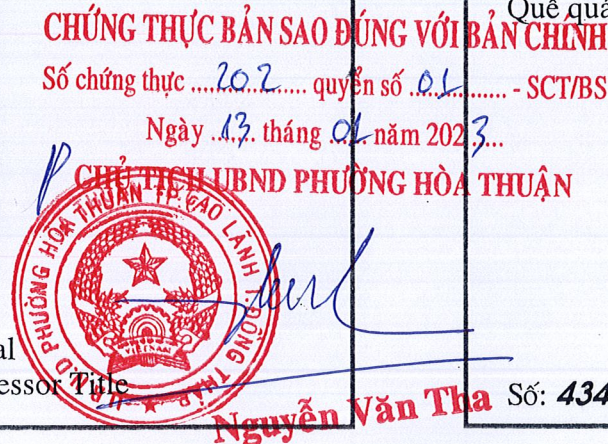 Quê quá
CHỨNG THỰC BẢN SAO ĐÚNG VỚI BẢN CHÍNH
Số chứng thực ...202... quyển số ..01... - SCT/BS
Ngày ..13.. tháng ..01.. năm 2023...
P CHỦ TỊCH UBND PHƯỜNG HÒA THUẬN
U.B.N.D PHƯỜNG HOÀ THUẬN TP.CAO LÃNH T.ĐỒNG THÁP
VIỆT NAM
al
essor Title
Nguyễn Văn Tha
Số: 434